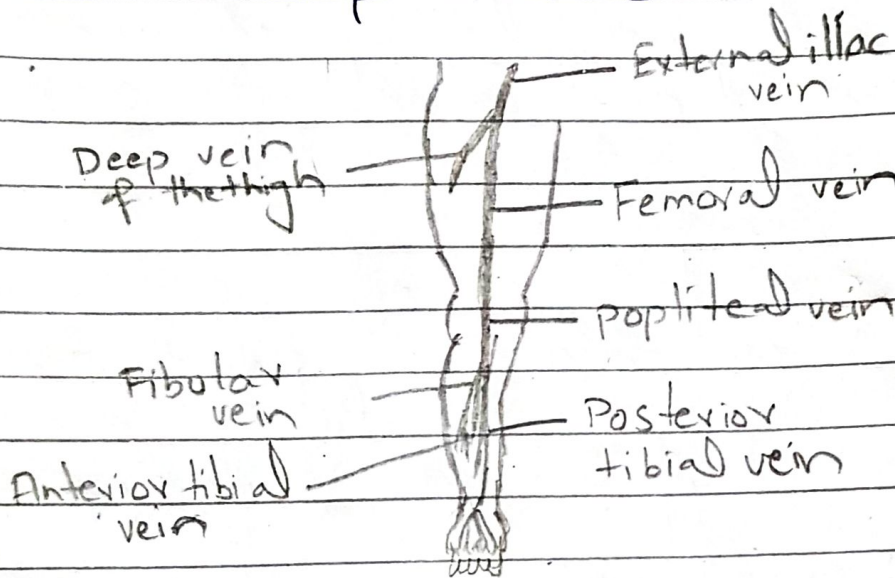 External illac
vein
Deep vein
of the thigh
Femoral vein
popliteal vein
Fibular
vein
Posterior
tibial vein
Anterior tibial
vein